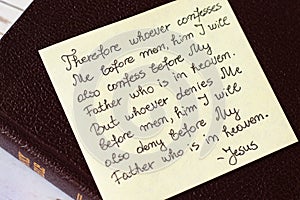 Therefore whoever confesses
Me before men, him I will
also confess before My
Father who is in heaven.
But whoever denies Me
before men, him I will
also deny before My
Father who is in heaven.
~Jesus